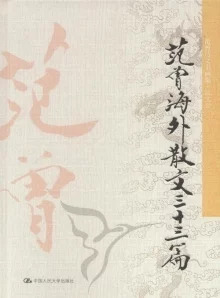 范曾海外散文三十三篇
范曾
中国人民大学出版社